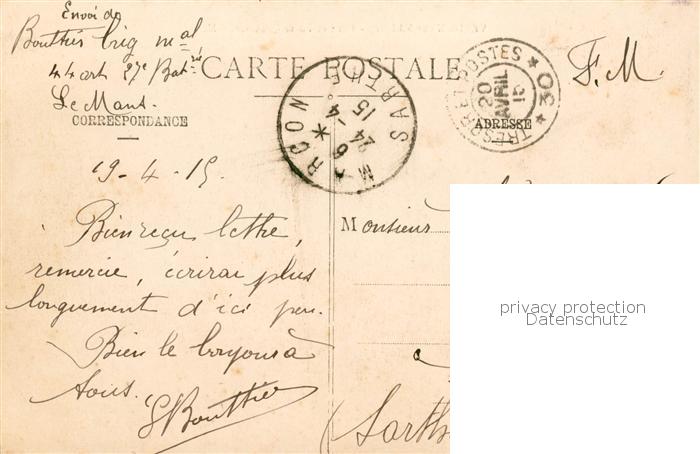 Envoi de
Bouthier brig mal
44 art 27e Batrie
Le Mans.
CARTE POSTALE
F. M.
CORRESPONDANCE
ADRESSE
TRESOR ET POSTES * 30 *
20
AVRIL
15
SARTHE
6 *
24 -4
15
19 - 4 - 15
Bien reçu lettre,
remercie, écrirai plus
longuement d'ici peu.
Bien le bonjour à
tous.
Bouthier
Monsieur
à
(Sarth
privacy protection
Datenschutz